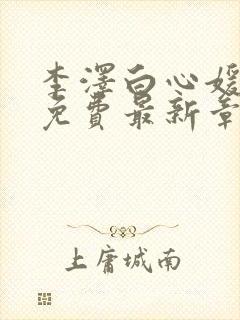 李澤白心媛
免費最新章
上庸城南